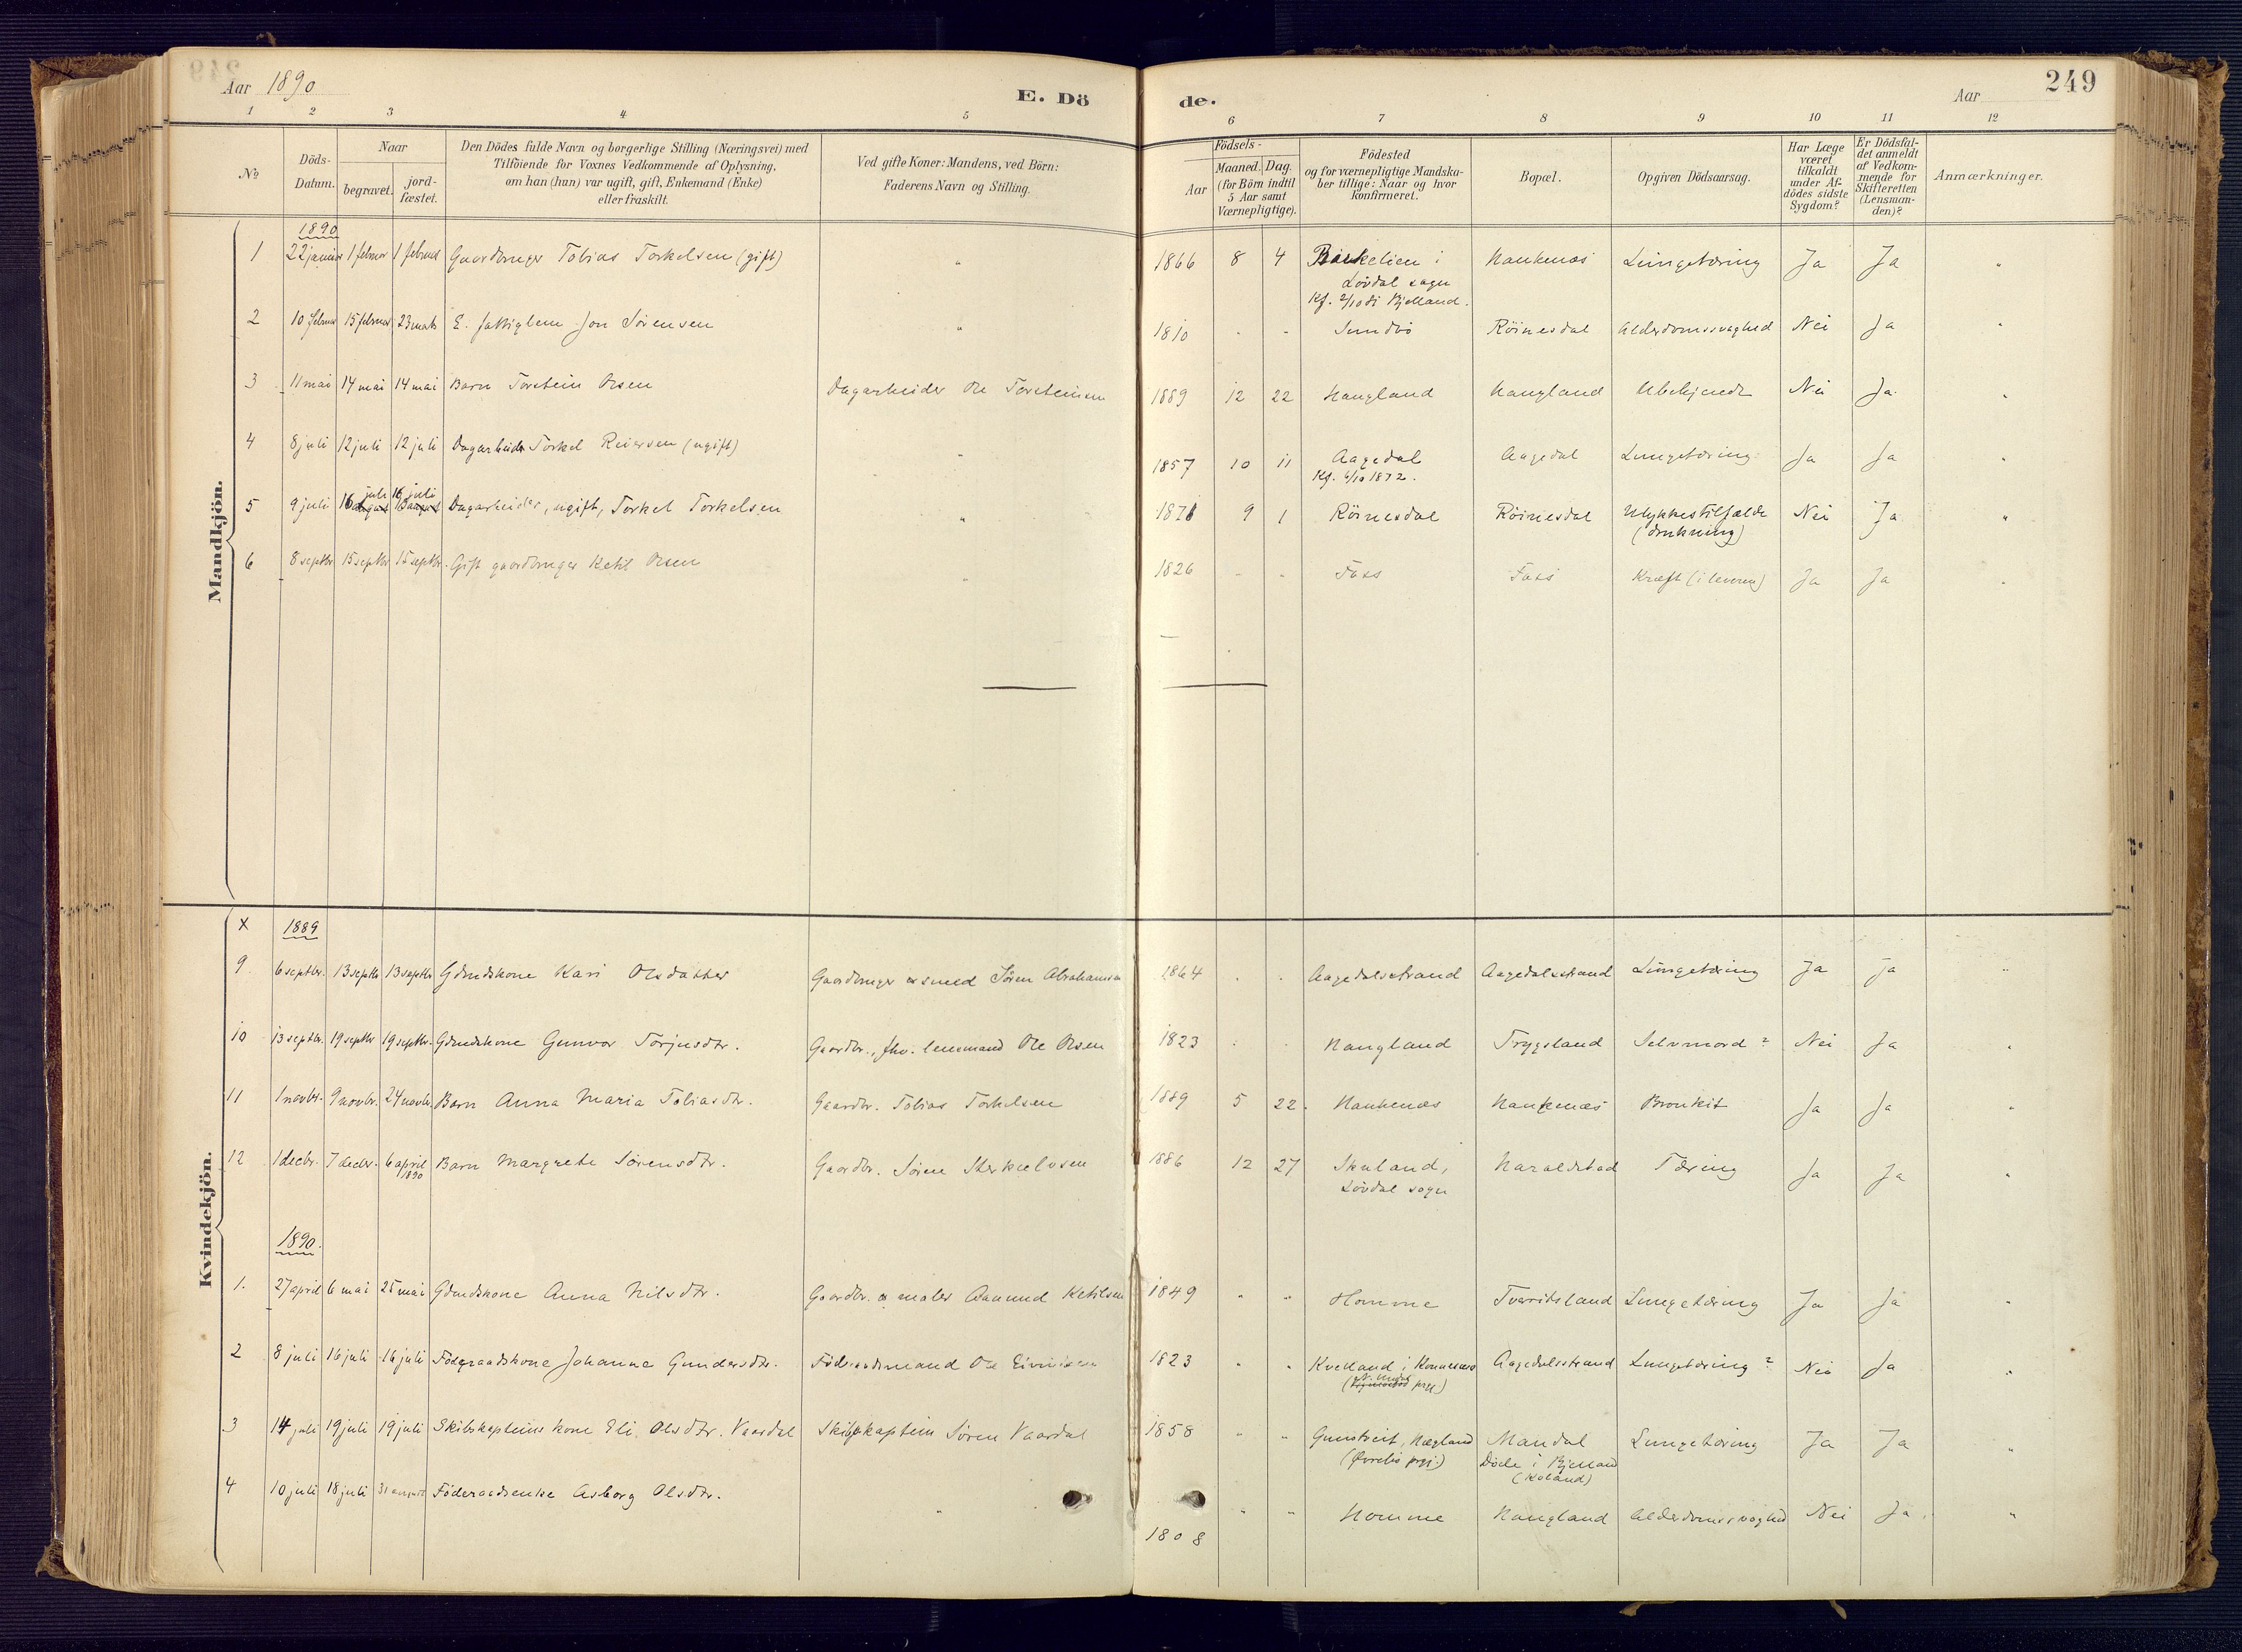 Aar 1890
E. Dö
de.
Aar
249
1 2 3 4 5 6 7 8 9 10 11 12
No
Döds-
Datum.
Naar
begravet.
jord-
fæstet.
Den Dödes fulde Navn og borgerlige Stilling (Næringsvei) med
Tilföiende for Voxnes Vedkommende af Oplysning,
om han (hun) var ugift, gift, Enkemand (Enke)
eller fraskilt.
Ved gifte Koner: Mandens, ved Börn:
Faderens Navn og Stilling.
Födsels-
Aar
Maaned. Dag.
(for Börn indtil
5 Aar samt
Værnepligtige).
Födested
og for værnepligtige Mandska-
ber tillige: Naar og hvor
konfirmeret.
Bopæl.
Opgiven Dödsaarsag.
Har Læge
været
tilkaldt
under Af-
dödes sidste
Sygdom?
Er Dödsfal-
det anmeldt
af Vedkom-
mende for
Skifteretten
(Lensman-
den)?
Anmærkninger.
Mandkjön.
1890
1 22 januar 1 februar 1 februar Gaardbruger Tobias Torkelsen (gift) " 1866 8 4 i Haukenæs Lungetæring Ja Ja "
Løvdal sogn
Kf. 2/10 81 Bjelland.
2 10 februar 15 februar 23 mats E. fattiglem Jon Sørensen " 1810 - - Sundbø Röinesdal Alderdomssvaghed Nei Ja "
3 11 mai 14 mai 14 mai Barn Torstein Olsen Dagarbeider Ole Torsteinsen 1889 12 22 Haugland Haugland Ubekjendt Nei Ja "
4 8 juli 12 juli 12 juli Dagarbeider Torkel Reiersen (ugift) " 1857 10 11 Aagedal Aagedal Lungetæring Ja Ja "
Kf. 6/10 1872.
juli 16 juli
5 9 juli 16 Dagarbeider, ugift, Torkel Torkelsen " 1871 9 1 Röinesdal Röinesdal Ulykkestilfælde Nei Ja "
(drukning)
6 8 septbr 15 septbr 15 septbr. Gift gaardbruger Ketil Olsen " 1826 - - Foss Foss Kræft (i leveren) Ja Ja "
Kvindekjön.
X 1889
9 6 septbr. 13 septbr 13 septbr Gdmdskone Kari Olsdatter Gaardbruger & smed Søren Abrahamsen 1864 - - Aagedalsstrand Aagedalsstrand Lungetæring Ja Ja "
10 13 septbr. 19 septbr 19 septbr. Gdmdskone Gunvor Torjusdtr. Gaardbr., fhv. lensmand Ole Olsen 1823 - - Haugland Trygsland Selvmord? Nei Ja "
11 1 novbr. 9 novbr. 24 novbr. Barn Anna Maria Tobiasdtr. Gaardbr. Tobias Torkelsen 1889 5 22. Haukenæs Haukenæs Bronkit Ja Ja "
12 1 decbr. 7 decbr. 6 april Barn Margrete Sørensdtr. Gaardbr. Søren 1886 12 27 Skuland, Haraldstad Tæring Ja Ja "
1890
Løvdal sogn
1890.
1. 27 april 6 mai 25 mai Gdmdskone Anna Nilsdtr. Gaardbr. & maler Aanund Ketilsen 1849 " " Homme Tveridsland Lungetæring Ja Ja "
2 8 juli 16 juli 16 juli Föderaadskone Johanne Gundersdtr. Föderaadsmand Ole Eivindsen 1823 " " Kvelland i Aagedalsstrand Lungetæring? Nei Ja "
prgj.)
3 14 juli 19 juli 19 juli Skibskapteins kone Eli Olsdtr. Vaardal Skibskaptein Søren Vaardal 1858 " " Gunstveit, Hægland Mandal Lungetæring Ja Ja "
(Øvrebø prgj.) Døde i Bjelland
(Koland)
4 10 juli 18 juli 31 august Föderaadsenke Asborg Olsdtr. " 1808 " " Homme Haugland Alderdomssvaghed Nei Ja "